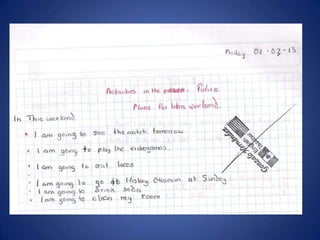 Friday 01-02-13
Activities in the Future
Plans for this weekend.
In This weekend
I am going to see the match tomorrow
I am going to play the videogames.
I am going to eat tacos
I am going to go to History Museum at Sunday
I am going to drink soda
I am going to clean my room